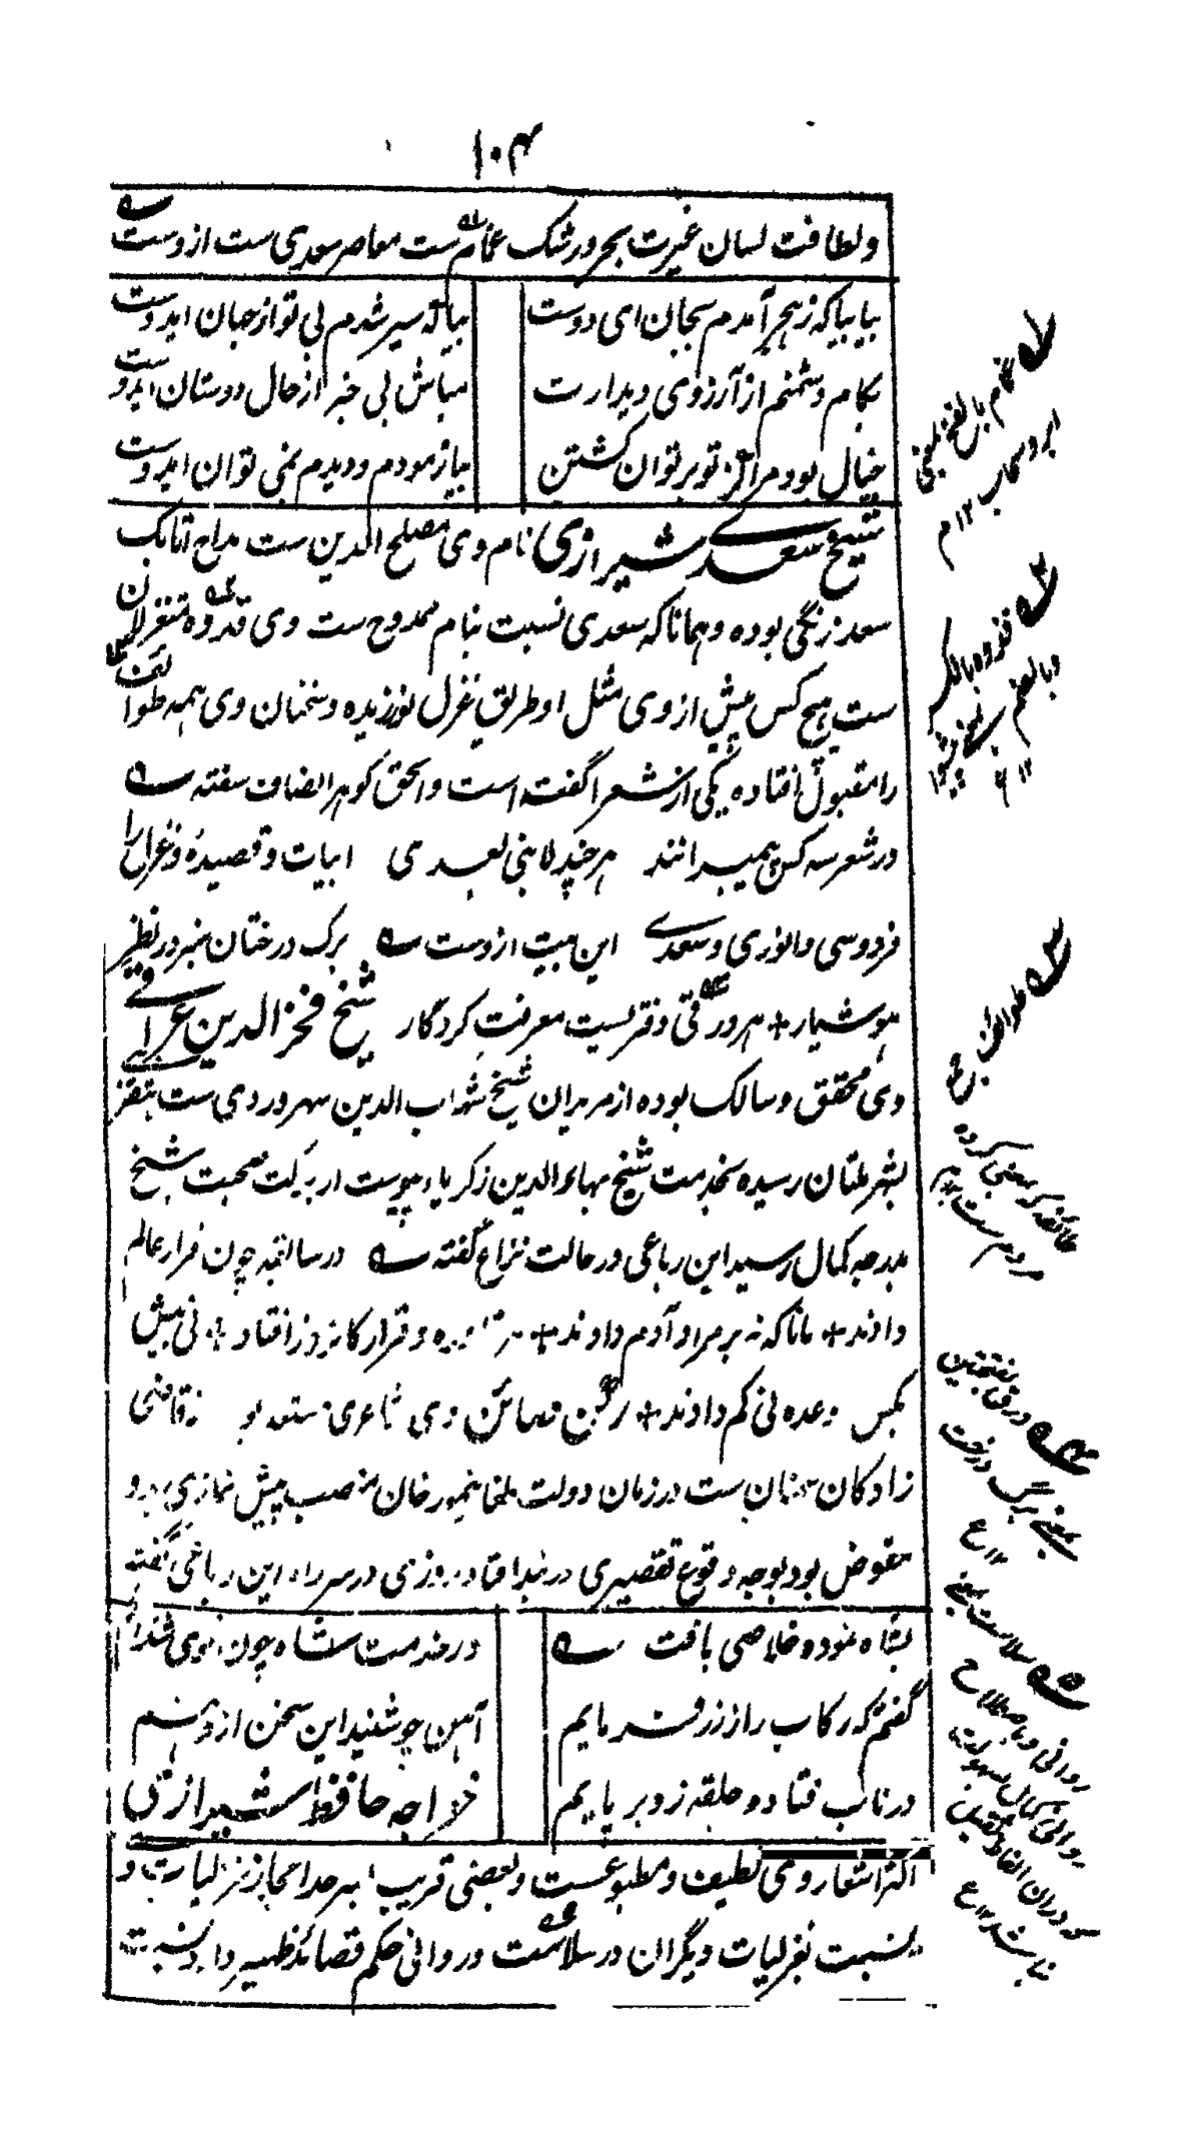 ۱۰۴
ولطافت لسان غیرت بحر و رشک غمام ست معاصر سعدی ست ازوست
بیا بیا که ز هجر آمدم بجان ای دوست بیا که سیر شدم بی تو از جهان ایدوست
بکام دشمنم از آرزوی دیدارت مباش بی خبر از حال دوستان ایدوست
خیال بود مرا کز تو بر توان گشتن بیازمودم و دیدم نمی توان ایدوست
شیخ سعدی شیرازی نام وی مصلح الدین ست مداح اتابک
سعد زنگی بوده و همانا که سعدی نسبت بنام ممدوح ست وی قدوه متغزلان
ست هیچ کس پیش از وی مثل او طریق غزل نورزیده و سخنان وی همه طوائف
را مقبول افتاده یکی از شعرا گفته است و الحق گوهر انصاف سفته
در شعر سه کس پیمبرانند هر چند لا نبی بعدی ابیات و قصیده و غزل را
فردوسی و انوری و سعدی این بیت ازوست برگ درختان سبز در نظر
هوشیار + هر ورقی دفتریست معرفت کردگار شیخ فخر الدین عراقی
وی محقق و سالک بوده از مریدان شیخ شهاب الدین سهروردی ست
بشهر ملتان رسیده بخدمت شیخ بهاء الدین زکریا پیوست از برکت صحبت شیخ
بدرجه کمال رسید این رباعی در حالت نزاع گفته در سابقه چون قرار عالم
دادند + مانا که نه بر مراد آدم دادند + قرار کان روز افتاد + نی بیش
بکس وعده نی کم دادند + وی شاعری قاضی
زادگان سمنان ست در زمان دولت خان منصب پیش نمازی
مفوض بود بوجه وقوع تقصیری در بند افتاد روزی در سر راه این رباعی گفته
بشاه نمود و خلاصی یافت در خدمت شاه چون
گفتم که رکاب را ز زر فرمایم آهن چو شنید این سخن از
در تاب فتاد و حلقه زد بر پایم خواجه حافظ شیرازی
اکثر اشعار وی لطیف و مطبوعست و بعضی قریب بسرحد اعجاز غزلیات
بنسبت غزلیات دیگران در سلاست و روانی حکم قصائد ظهیر دارد نسبت
غمام بالفتح بمعنی
ابر و سحاب ۱۲ م
قدوه بالکسر
و بالضم
طوائف جمع
طائفه که بمعنی گروه
مردم ست
ورق بفتحتین
بمعنی برگ درخت
۱۲ ع
سلاست بمعنی
روانی و باصطلاح
روانی کمال سهولت
که دران الفاظ ثقیل
نباشد ۱۲ ع